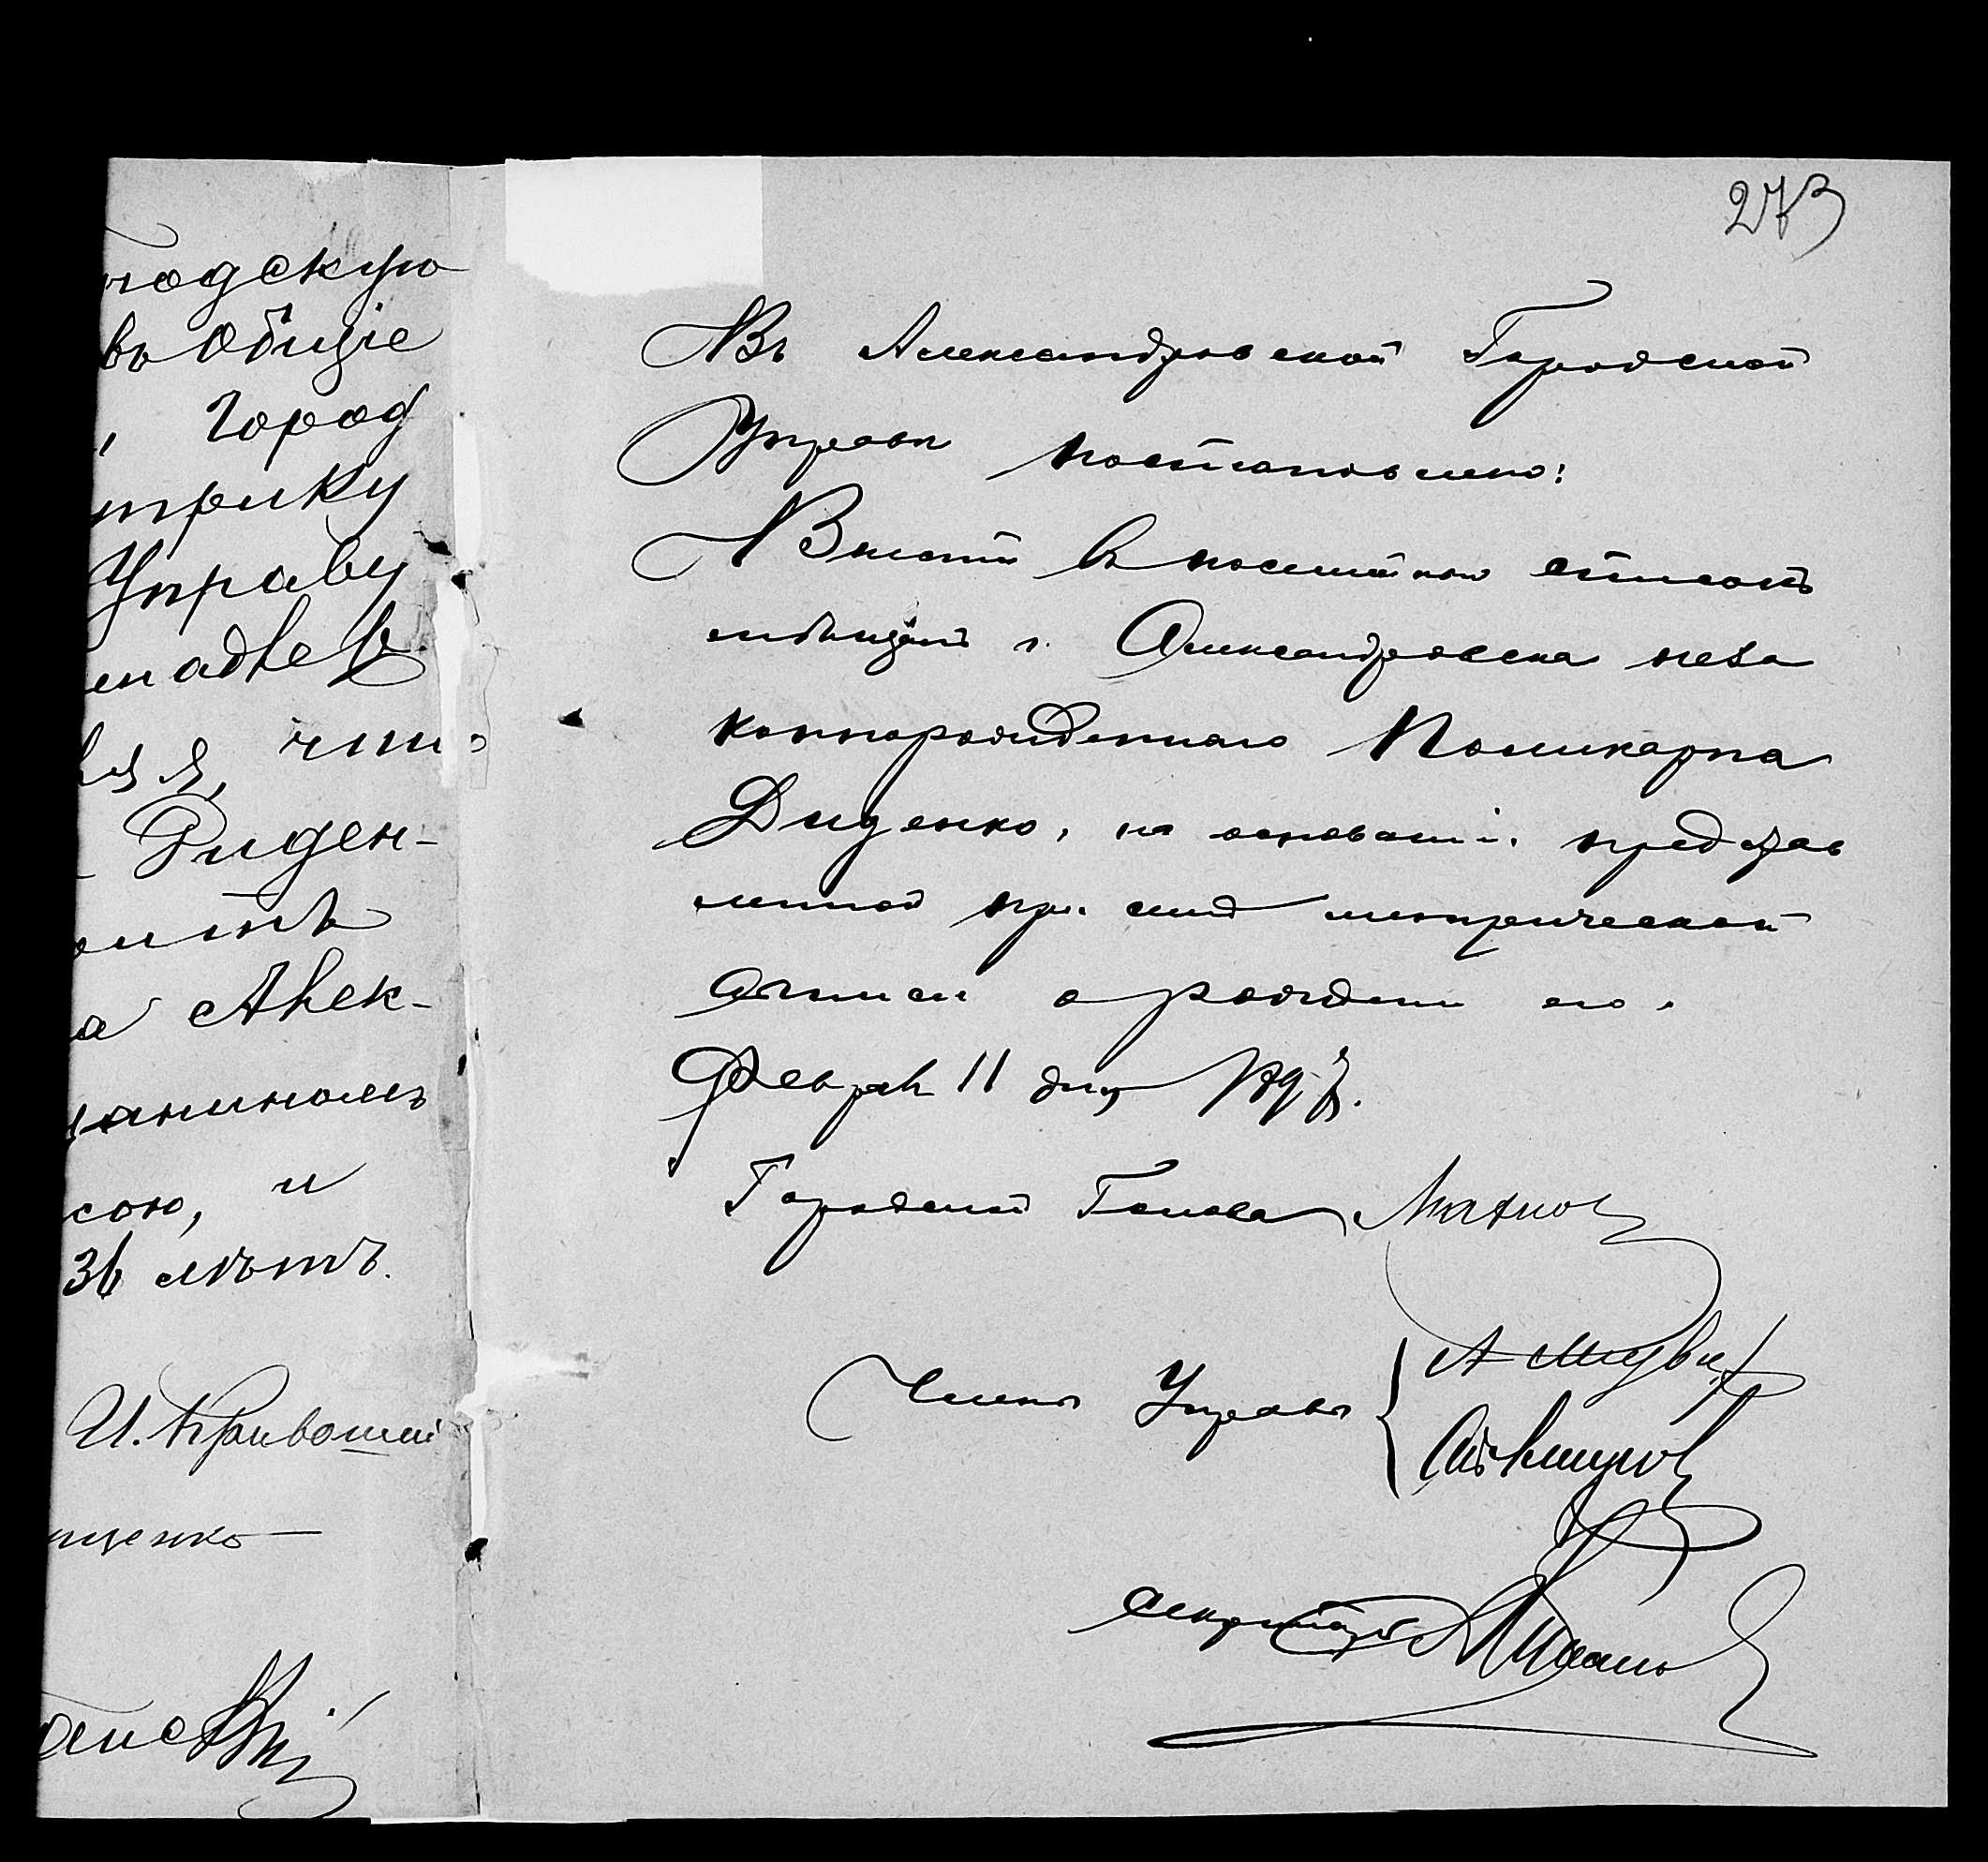 родскую
въ Общіе
, Город
трику
Управу
надлеж
что
Диден-
а Алек-
аниномъ
сою, и
36 лѣтъ.
И. Кривошей
щенко
273
Въ Александровской Городской
Управѣ постановлено:
Внести въ посемейный списокъ
мѣщанъ г. Александровска неза
коннорожденнаго Поликарпа
Диденко, на основаніи представ
ленной при семъ метрической
выписи о рожденіи его.
Февраля 11 дня
Городской Голова Махно
Члены Управы
Секретарь